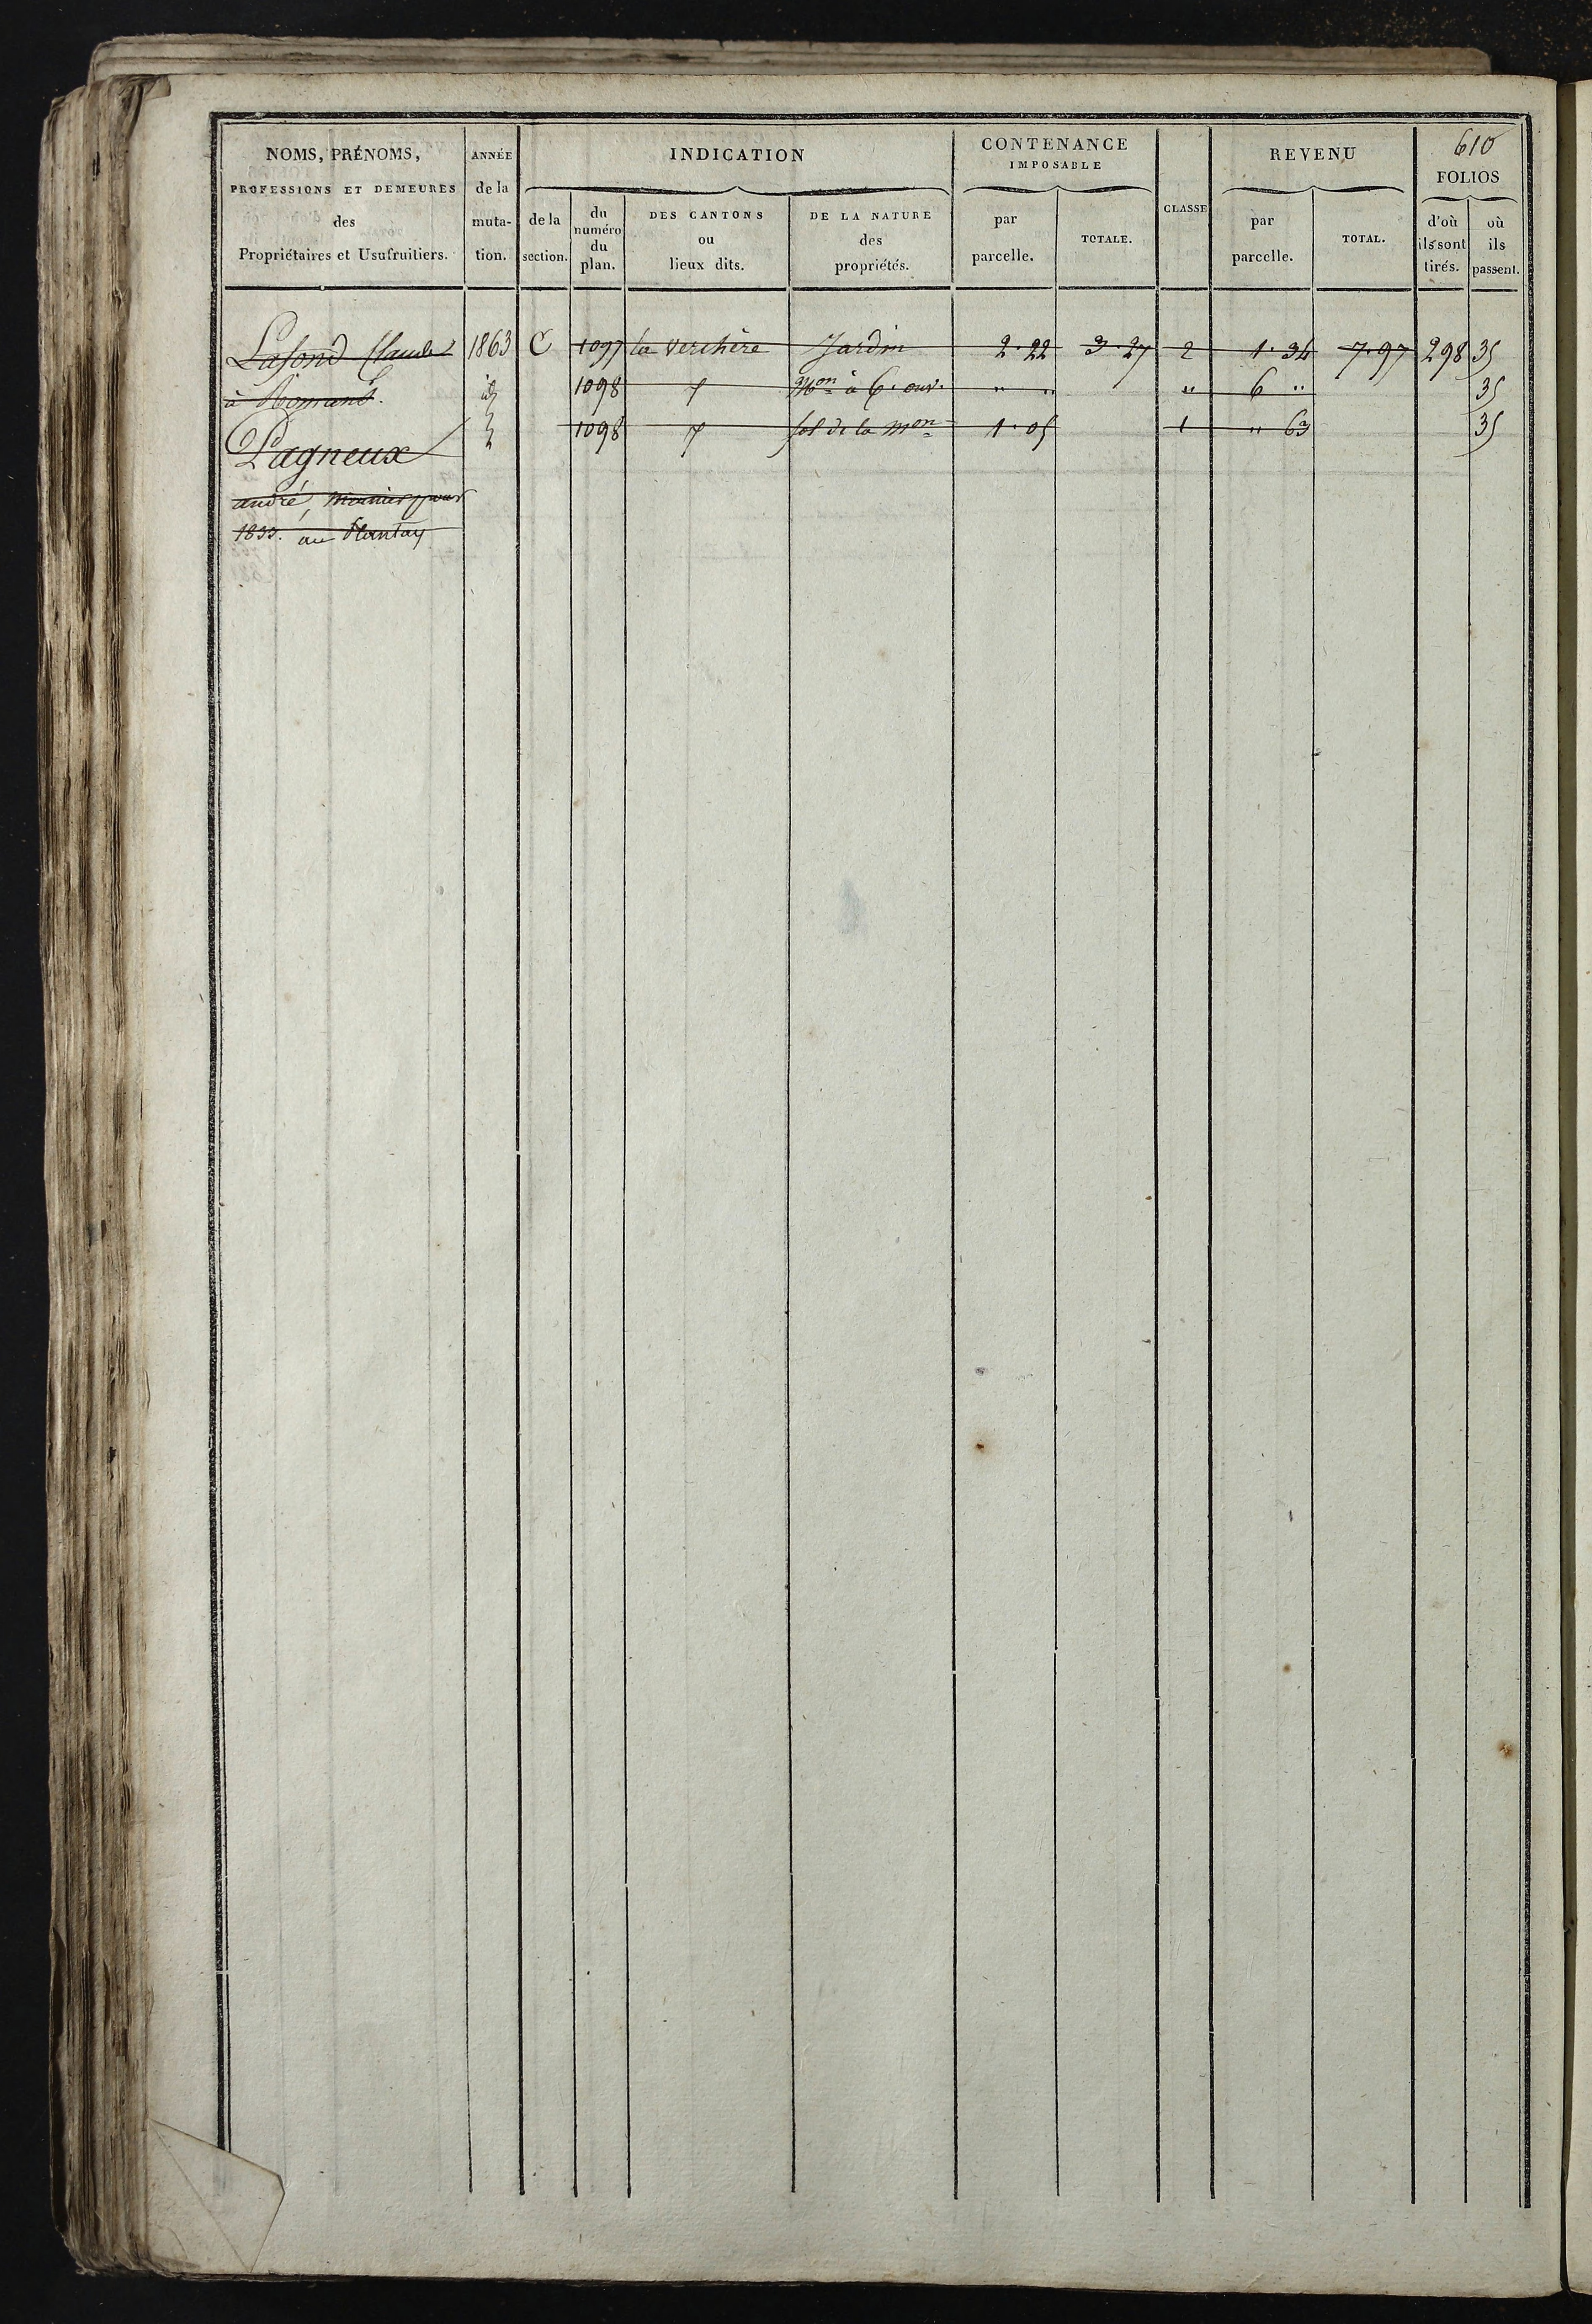 610
NOMS, PRÉNOMS,
PROFESSIONS ET DEMEURES
des
Propriétaires et Usufruitiers.
ANNÉE
de la
muta-
tion.
INDICATION
de la
section.
du
numéro
du
plan.
DES CANTONS
ou
lieux dits.
DE LA NATURE
des
propriétés.
CONTENANCE
IMPOSABLE
par
parcelle.
TOTALE.
CLASSE
REVENU
par
parcelle.
TOTAL.
FOLIOS
d'où
ils sont
tirés.
où
ils
passent.
Lafond Claude 1863 C 1097 la verchère Jardin 2.22 3.27 2 1.34 7.97 298 35
à Romans. id 1098 Mon à 6. ouv. " " " 6 " 35
1098 sol de la Mon 1.05 1 " 63 35
Pagneux
andré, meunier pour
1855. au Plantay